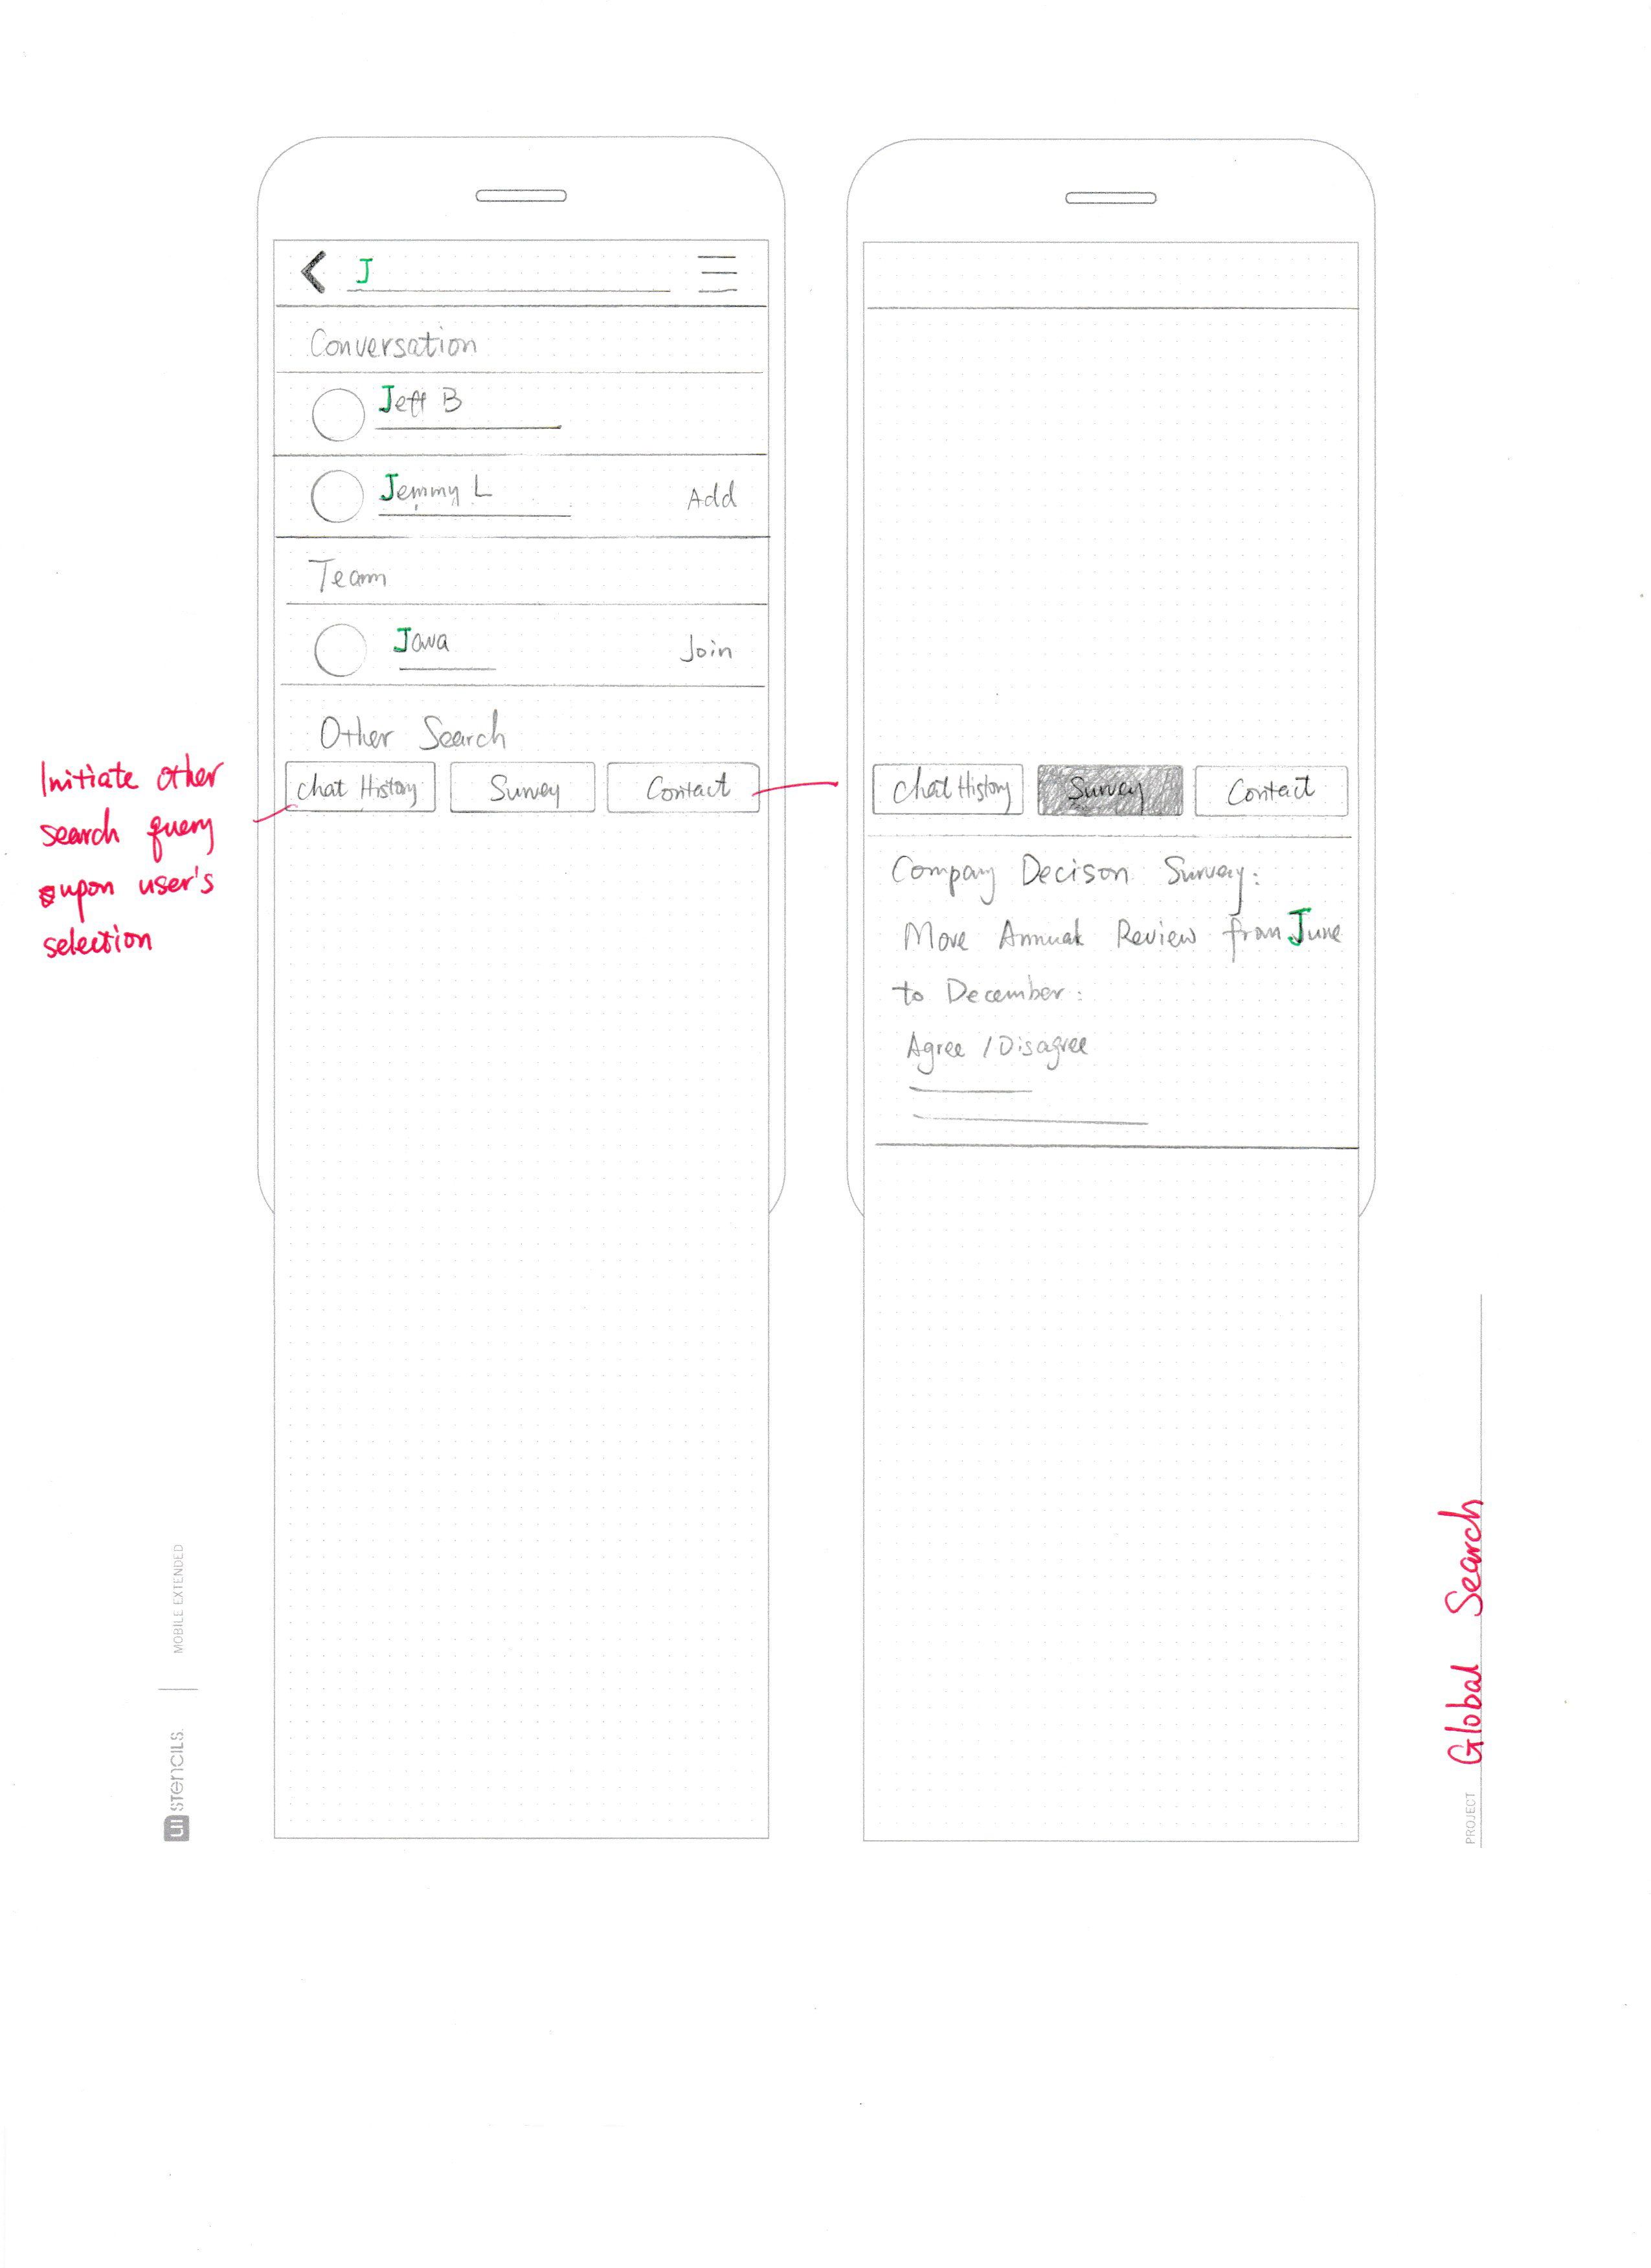 J
Conversation
Jeff B
Jemmy L
Add
Team
Java
Join
Other Search
Chat History
Survey
Contact
Initiate other
search query
upon user's
selection
Chat History
Survey
Contact
Company Decison Survey:
Move Annual Review from June
to December:
Agree / Disagree
UI STENCILS.
MOBILE EXTENDED
PROJECT
Global Search